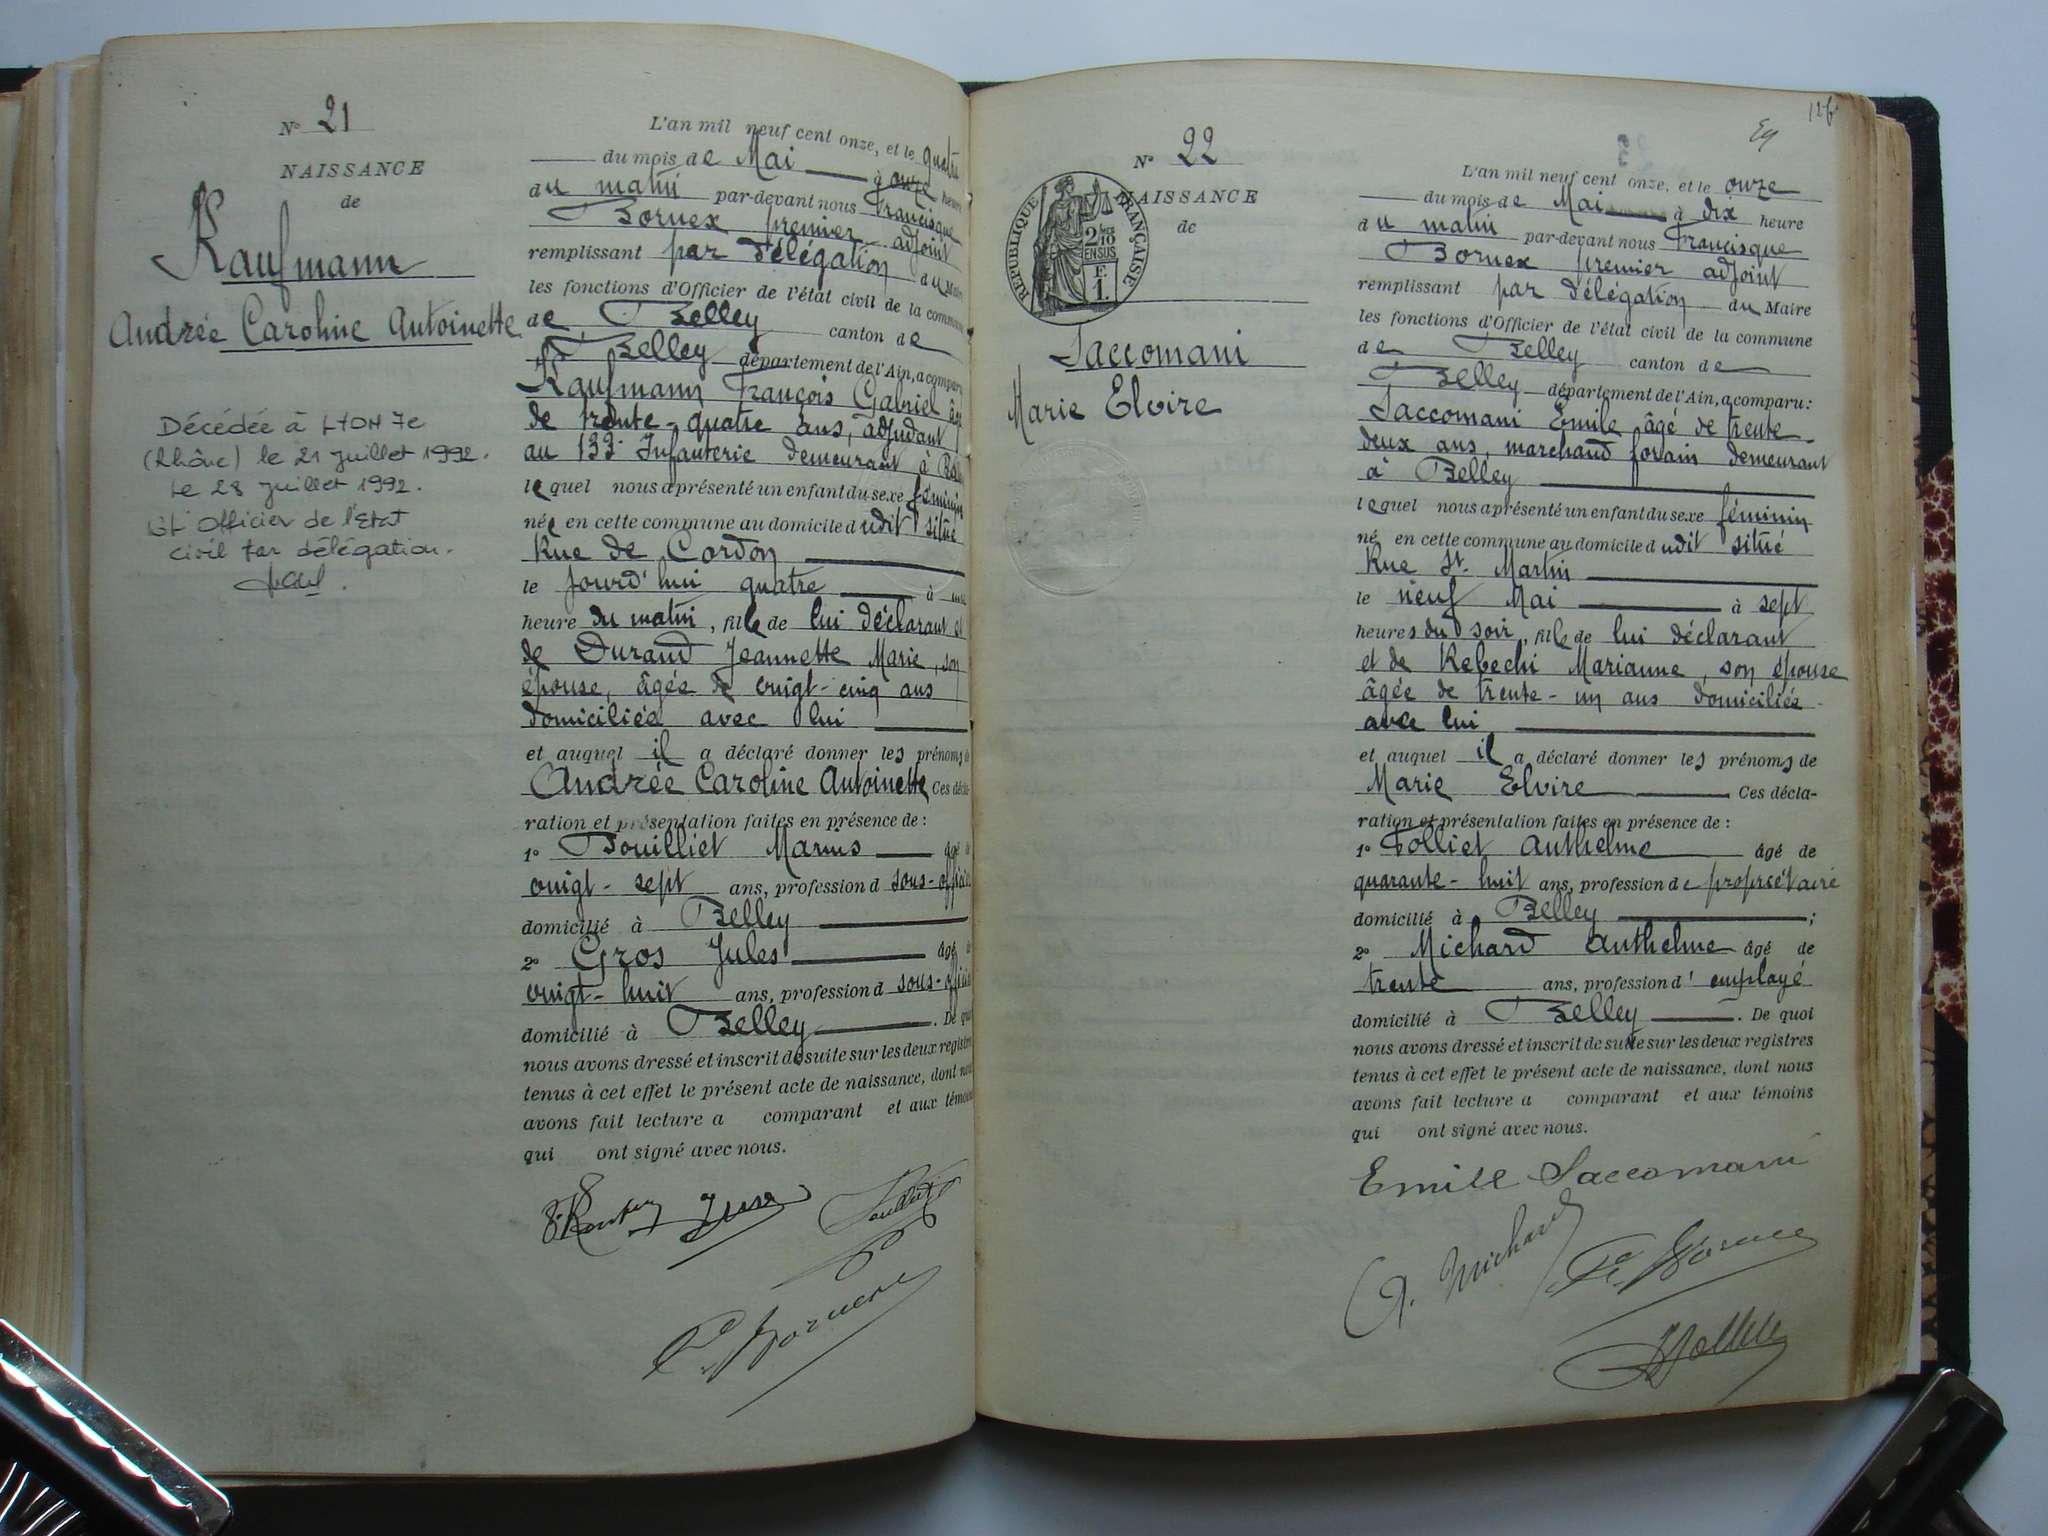 N° 21
NAISSANCE
de
Kaufmann
Andrée Caroline Antoinette
Décédée à LYON 7e
(Rhône) le 21 juillet 1992.
Le 28 juillet 1992.
Officier de l'Etat
civil par délégation.
L'an mil neuf cent onze, et le quatre
du mois de Mai à onze heure
du matin par-devant nous Francisque
Bornex premier adjoint
remplissant par délégation du Maire
les fonctions d'Officier de l'état civil de la commune
de Belley canton de
Belley département de l'Ain, a comparu
Kaufmann François Gabriel âgé
de trente-quatre ans, adjudant
au 133e Infanterie demeurant à
lequel nous a présenté un enfant du sexe féminin
née en cette commune au domicile dudit situé
Rue de Cordon
le jourd'hui quatre à une
heure du matin, fille de lui déclarant et
de Durand Jeannette Marie, son
épouse, âgée de vingt-cinq ans
domiciliée avec lui
et auquel il a déclaré donner les prénoms de
Andrée Caroline Antoinette Ces décla-
ration et présentation faites en présence de :
1° Bouilliet Marius âgé de
vingt-sept ans, profession d sous-officier
domicilié à Belley
2° Gros Jules âgé de
vingt-huit ans, profession d sous-officier
domicilié à Belley. De quoi
nous avons dressé et inscrit de suite sur les deux registres
tenus à cet effet le présent acte de naissance, dont nous
avons fait lecture a comparant et aux témoins
qui ont signé avec nous.
F. Bornex
126
N° 22
NAISSANCE
de
RÉPUBLIQUE FRANÇAISE
2/10 EN SUS
F.
1.
Saccomani
Marie Elvire
L'an mil neuf cent onze, et le onze
du mois de Mai à dix heure
du matin par-devant nous Francisque
Bornex premier adjoint
remplissant par délégation du Maire
les fonctions d'Officier de l'état civil de la commune
de Belley canton de
Belley département de l'Ain, a comparu :
Saccomani Emile âgé de trente-
deux ans, marchand forain demeurant
à Belley
lequel nous a présenté un enfant du sexe féminin
né en cette commune au domicile dudit situé
Rue St. Martin
le neuf Mai à sept
heures du soir, fille de lui déclarant
et de Rebechi Marianne, son épouse
âgée de trente-un ans domiciliée
avec lui
et auquel il a déclaré donner les prénoms de
Marie Elvire Ces décla-
ration et présentation faites en présence de :
1° Folliet Anthelme âgé de
quarante-huit ans, profession de propriétaire
domicilié à Belley ;
2° Michard Anthelme âgé de
trente ans, profession d'employé
domicilié à Belley. De quoi
nous avons dressé et inscrit de suite sur les deux registres
tenus à cet effet le présent acte de naissance, dont nous
avons fait lecture a comparant et aux témoins
qui ont signé avec nous.
Emile Saccomani
A. Michard
F. Bornex